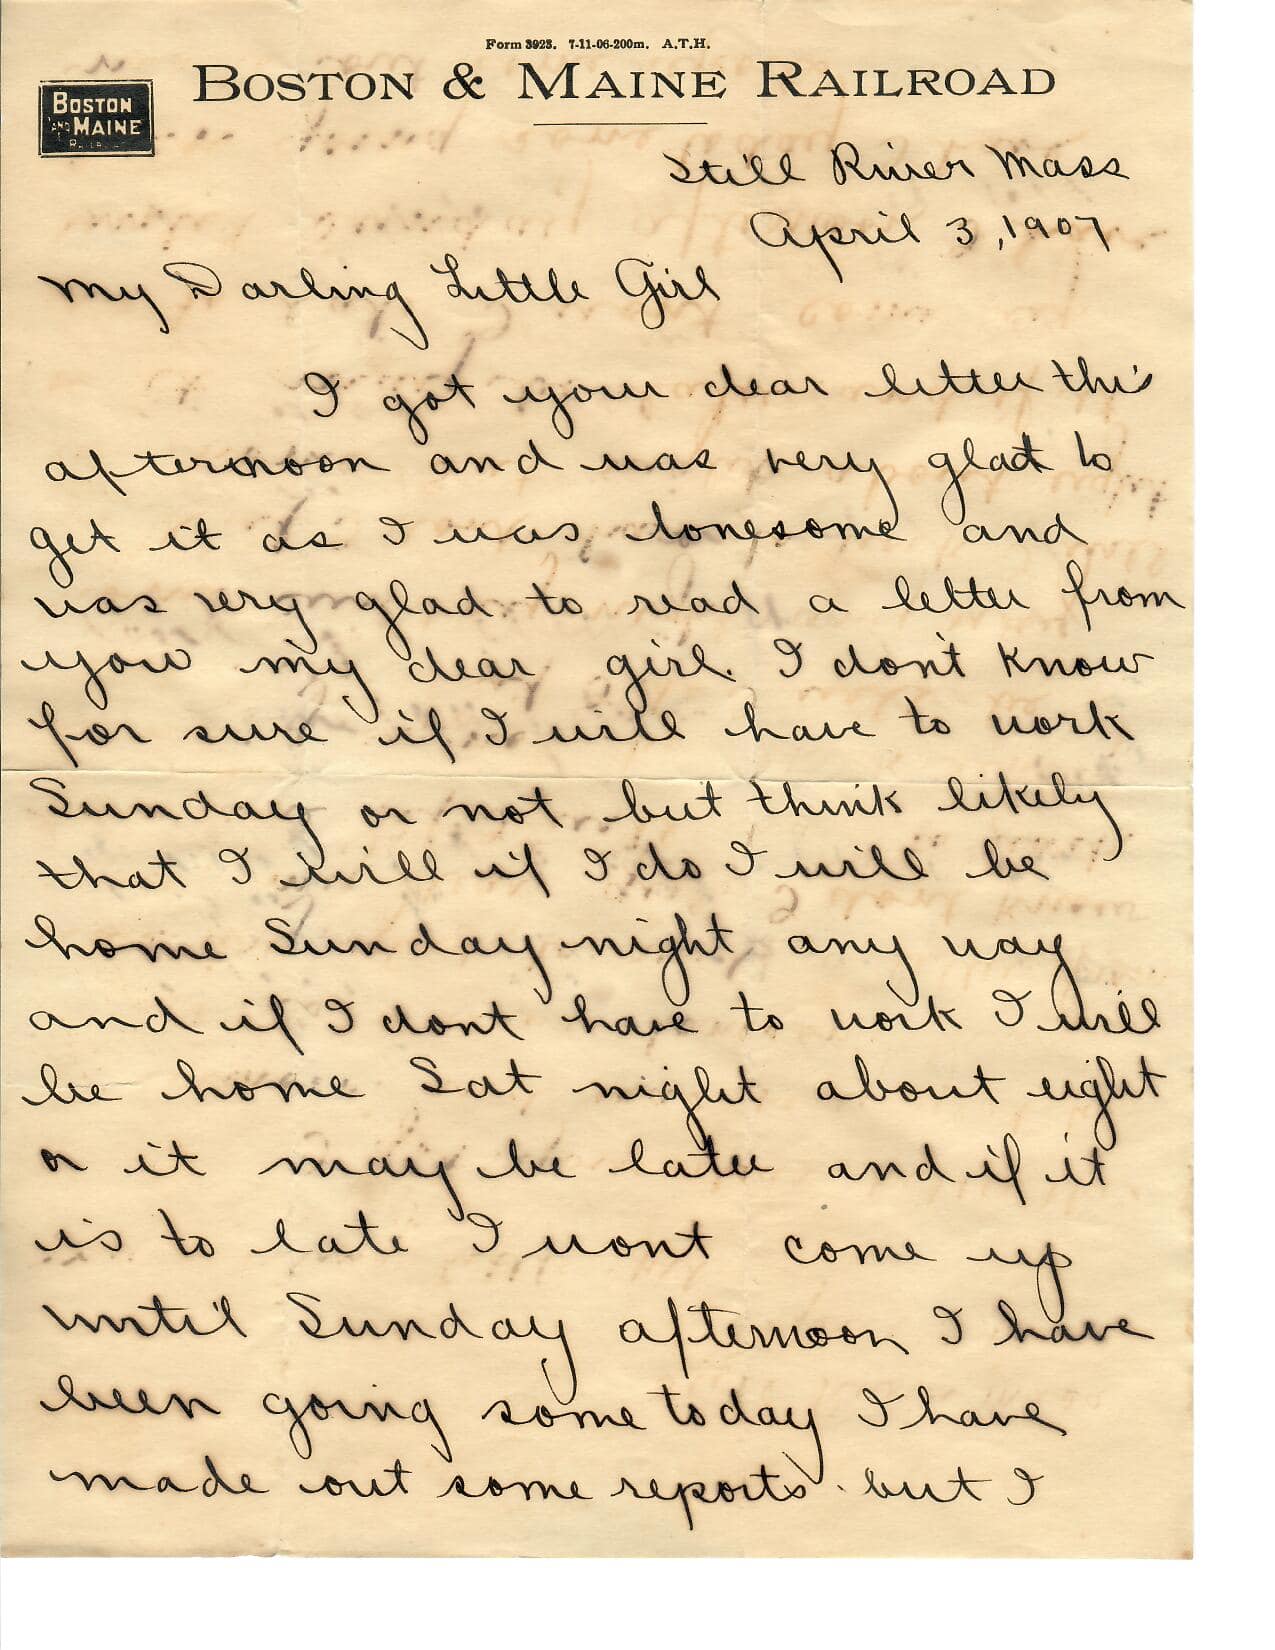 Form 3923. 7-11-06-200m. A.T.H.
BOSTON & MAINE RAILROAD
BOSTON
AND MAINE
RAILROAD
Still River Mass
April 3, 1907
My Darling Little Girl
I got your dear letter this
afternoon and was very glad to
get it as I was lonesome and
was very glad to read a letter from
you my dear girl. I don't know
for sure if I will have to work
Sunday or not but think likely
that I will if I do I will be
home Sunday night any way
and if I dont have to work I will
be home Sat night about eight
or it may be later and if it
is to late I wont come up
until Sunday afternoon I have
been going some today I have
made out some reports but I